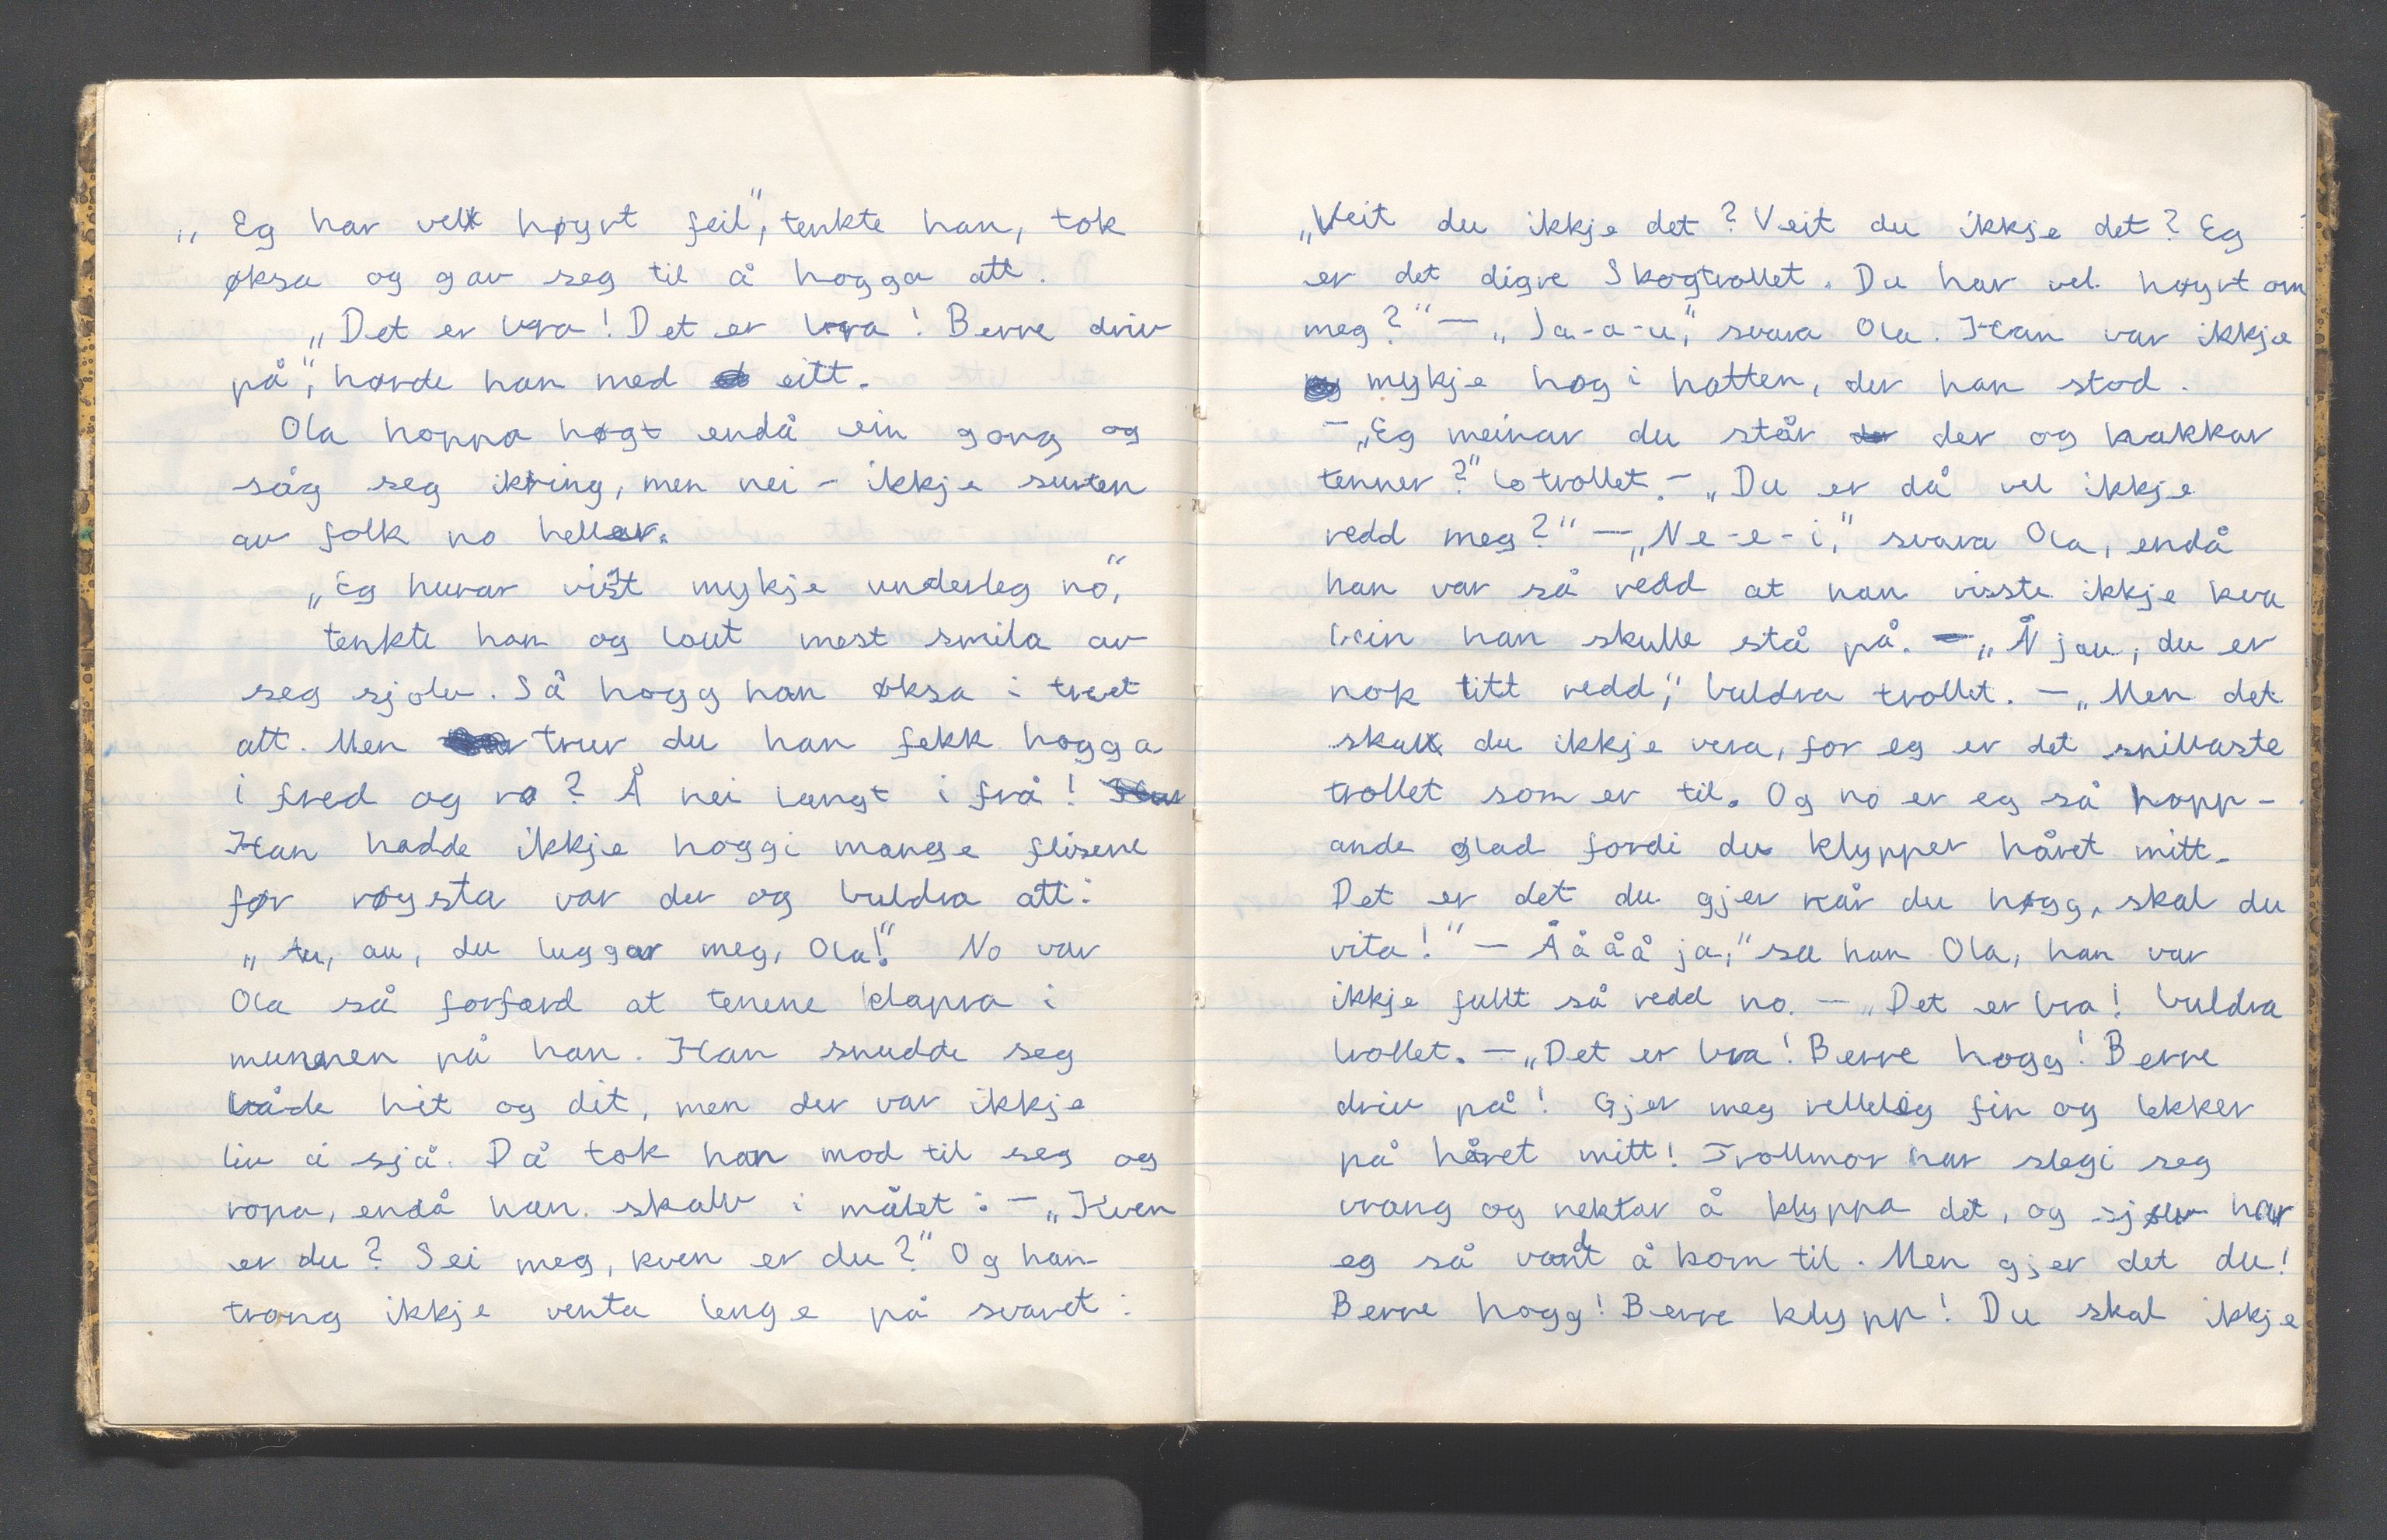 „Eg har vel høyrt feil", tenkte han, tok
øksa og gav seg til å hogga att.
„Det er bra! Det er bra! Berre driv
på", høyrde han med eitt.
Ola hoppa høgt endå ein gong og
såg seg ikring, men nei - ikkje snurten
av folk no heller.
„Eg hurar visst mykje underleg no",
tenkte han og lout mest smila av
seg sjølv. Så hogg han øksa i treet
att. Men trur du han fekk hogga
i fred og ro? Å nei langt i frå!
Han hadde ikkje hoggi mange flisene
før røysta var der og buldra att:
„Au, au, du luggar meg, Ola!" No var
Ola så forfærd at tenene klapra i
munnen på han. Han snudde seg
både hit og dit, men der var ikkje
liv å sjå. Då tok han mod til seg og
ropa, endå han skalv i målet: - „Kven
er du? Sei meg, kven er du?" Og han
trong ikkje venta lenge på svaret:
„Veit du ikkje det? Veit du ikkje det? Eg
er det digre Skogtrollet. Du har vel høyrt om
meg?" - „Ja-a-a", svara Ola. Han var ikkje
mykje høg i hatten, der han stod.
- „Eg meinar du står der og hakkar
tenner?" lo trollet. - „Du er då vel ikkje
redd meg?" - „Ne-e-i", svara Ola, endå
han var så redd at han visste ikkje kva
bein han skulle stå på. - „Å jau, du er
nok litt redd", buldra trollet. - „Men det
skal du ikkje vera, for eg er det snillaste
trollet som er til. Og no er eg så hopp-
ande glad fordi du klypper håret mitt.
Det er det du gjer når du høgg, skal du
vita!" - Åååå ja," sa han Ola, han var
ikkje fullt så redd no. - „Det er bra! buldra
trollet. - „Det er bra! Berre hogg! Berre
driv på! Gjer meg velleleg fin og lekker
på håret mitt! Trollmor har slegi seg
vrang og nektar å klyppa det, og sjølv har
eg så vandt å kom til. Men gjer det du!
Berre hogg! Berre klypp! Du skal ikkje